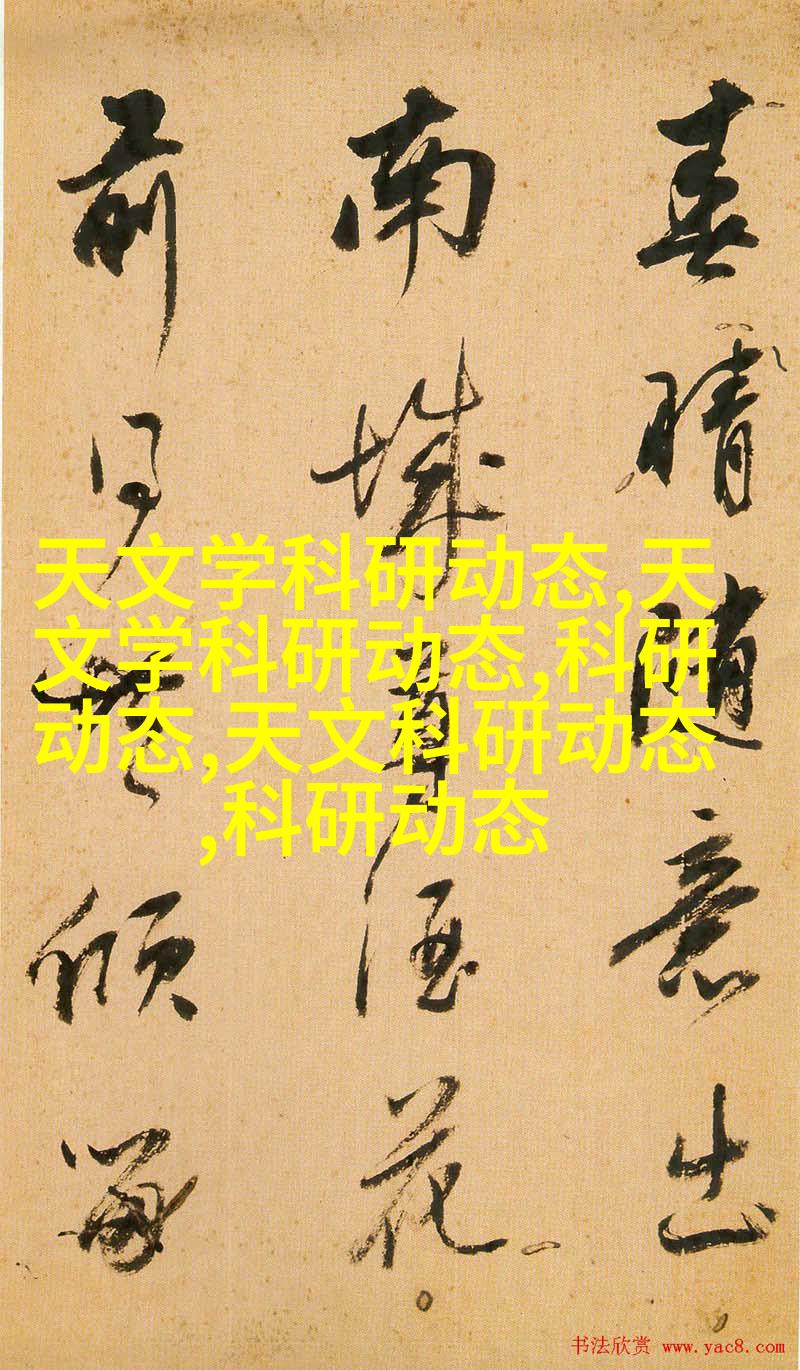 春晴随意出
南城尊酒花
前傾
天文学科研动态,天
文学科研动态,科研
动态,天文科研动态
,科研动态
书法欣赏 www.yac8.com